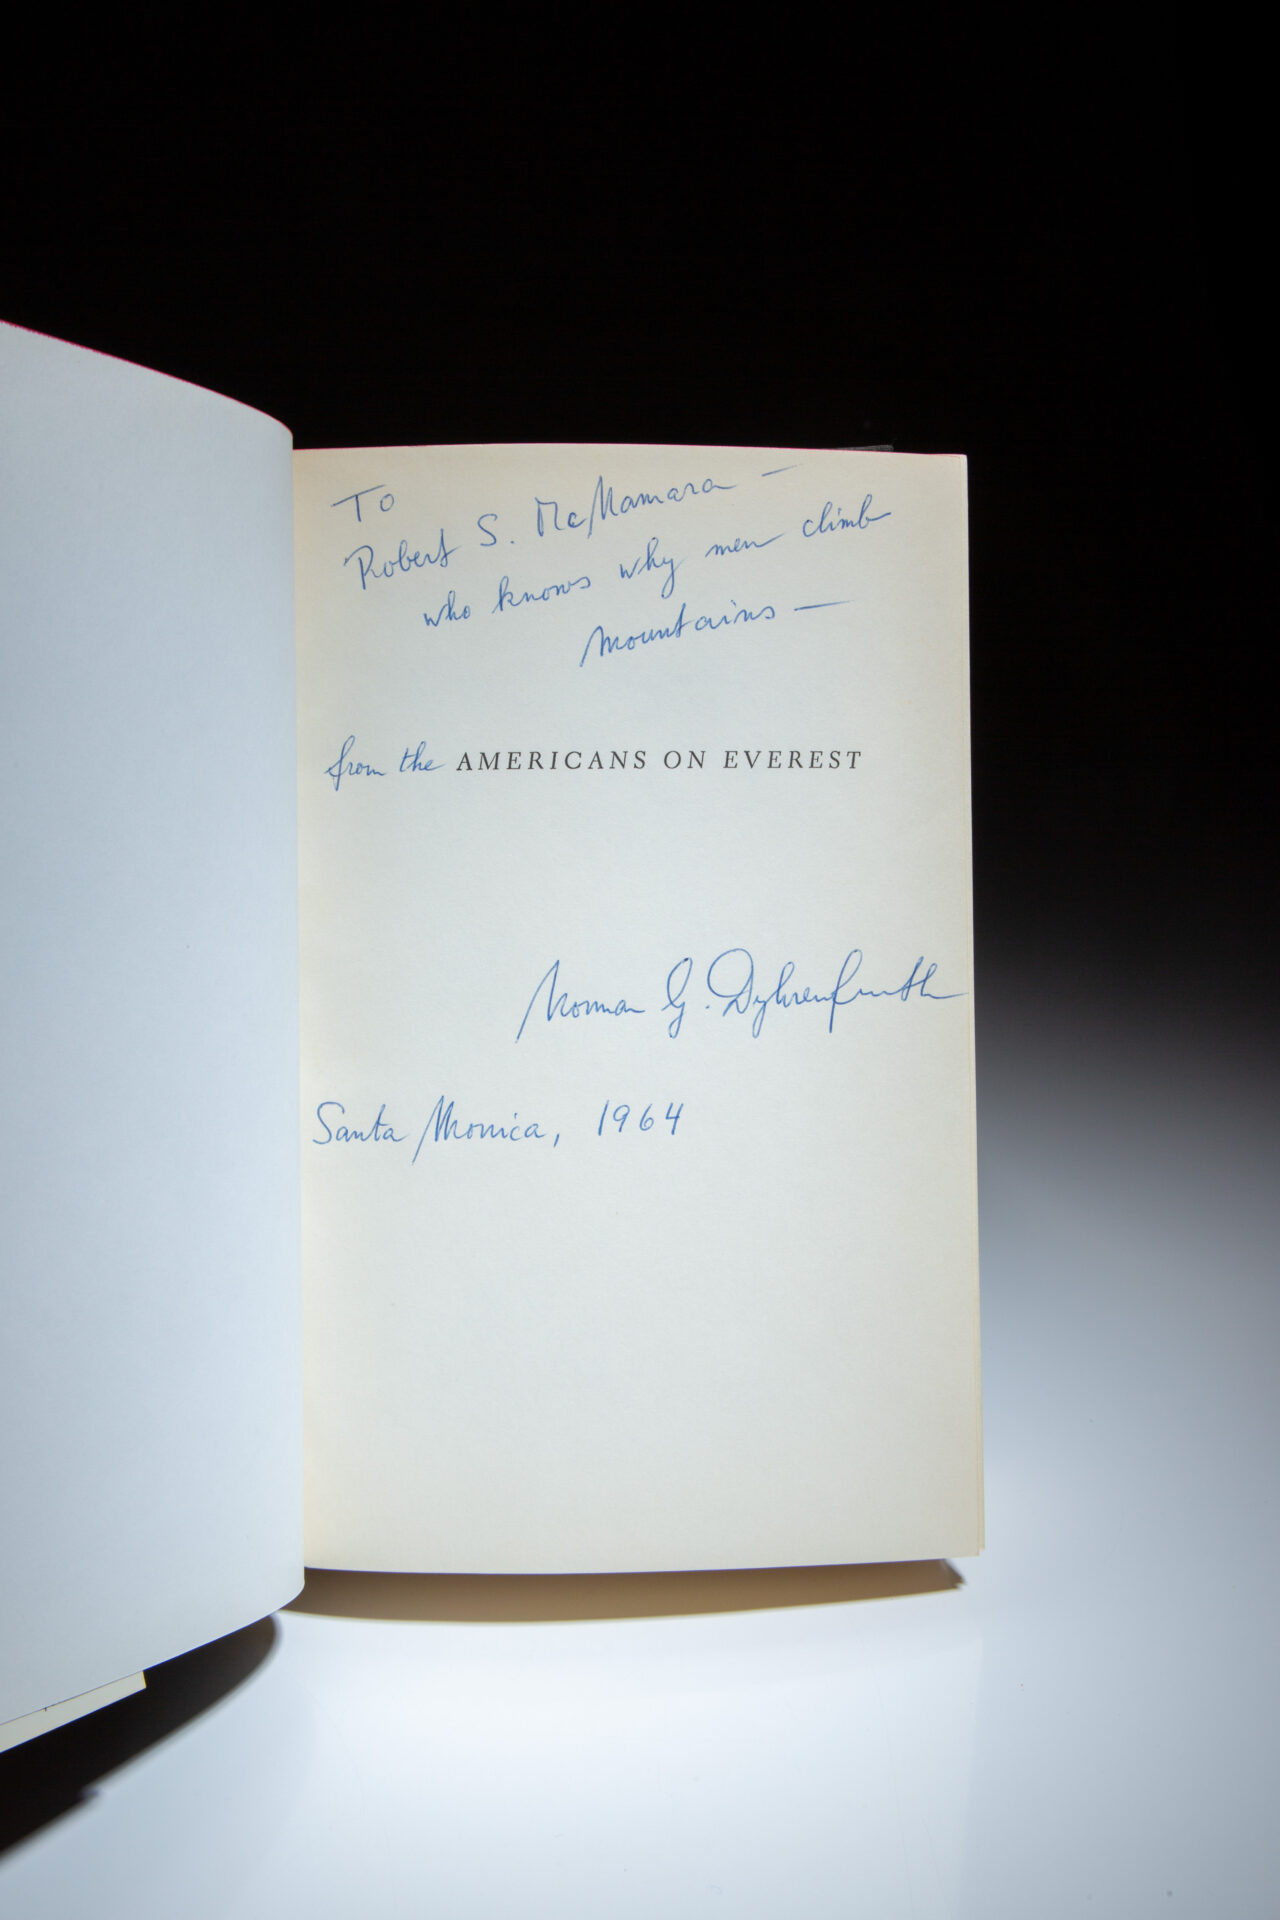 To
Robert S. McNamara —
who knows why men climb
mountains —
from the AMERICANS ON EVEREST
Norman G. Dyhrenfurth
Santa Monica, 1964